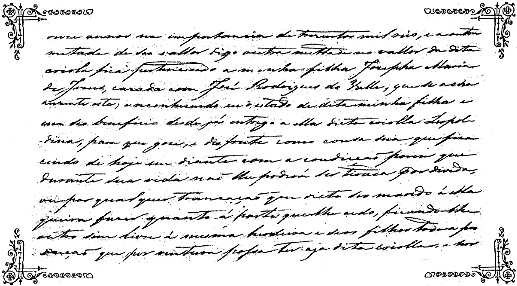 onze annos na importancia de trezentos mil reis, e a outra
metade de seo vallor digo outra metade no vallor da dita
criola fica pertencendo a minha filha Josepha Maria
de Jesus, cazada com José Rodrigues do Valle, que se acha
auzente
em seo beneficio desde já entrego a ella dita criolla Leopol
dina, para que goze, e desfrute como couza sua que fica
sendo de hoje em diante com a condição porem que
durante sua vida não lhe poderá ser tirada por divida,
ou por qual quer tranzação que dito seo marido
queira fazer quanto á parte, que lhe cedo, ficando-lhe
outro sim livre á mesma herdeira e seos filhos toda a pro
dução que por ventura possa ter, aja dita criolla, e por